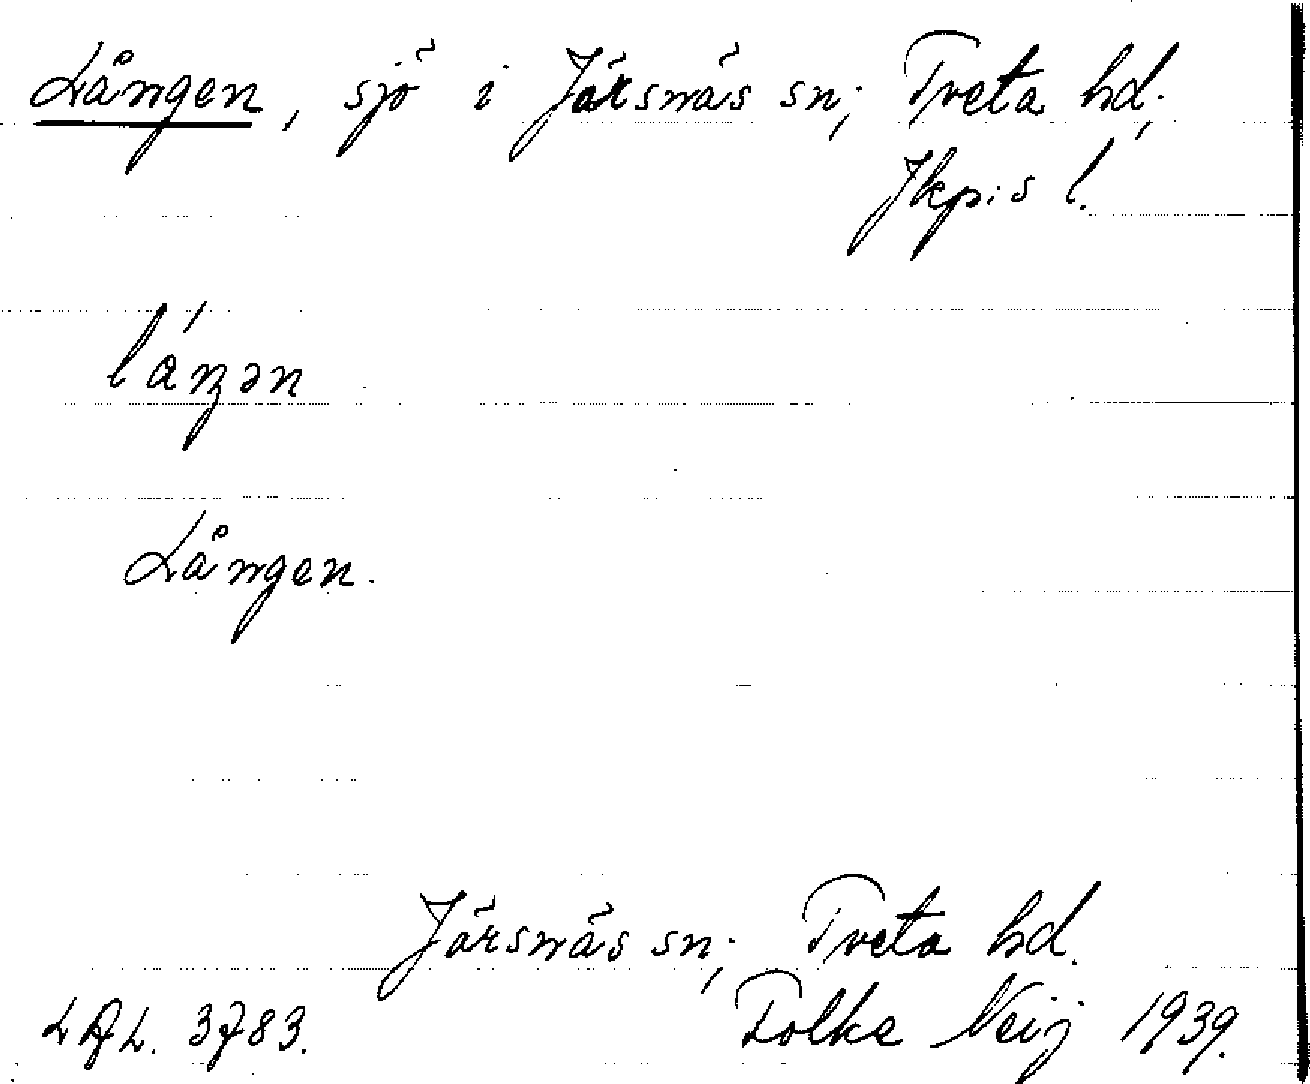 Lången, sjö i Järsnäs sn; Tveta hd;
Jkp:s l.
Lången.
Järsnäs sn; Tveta hd.
3783. Folke Neij 1939.